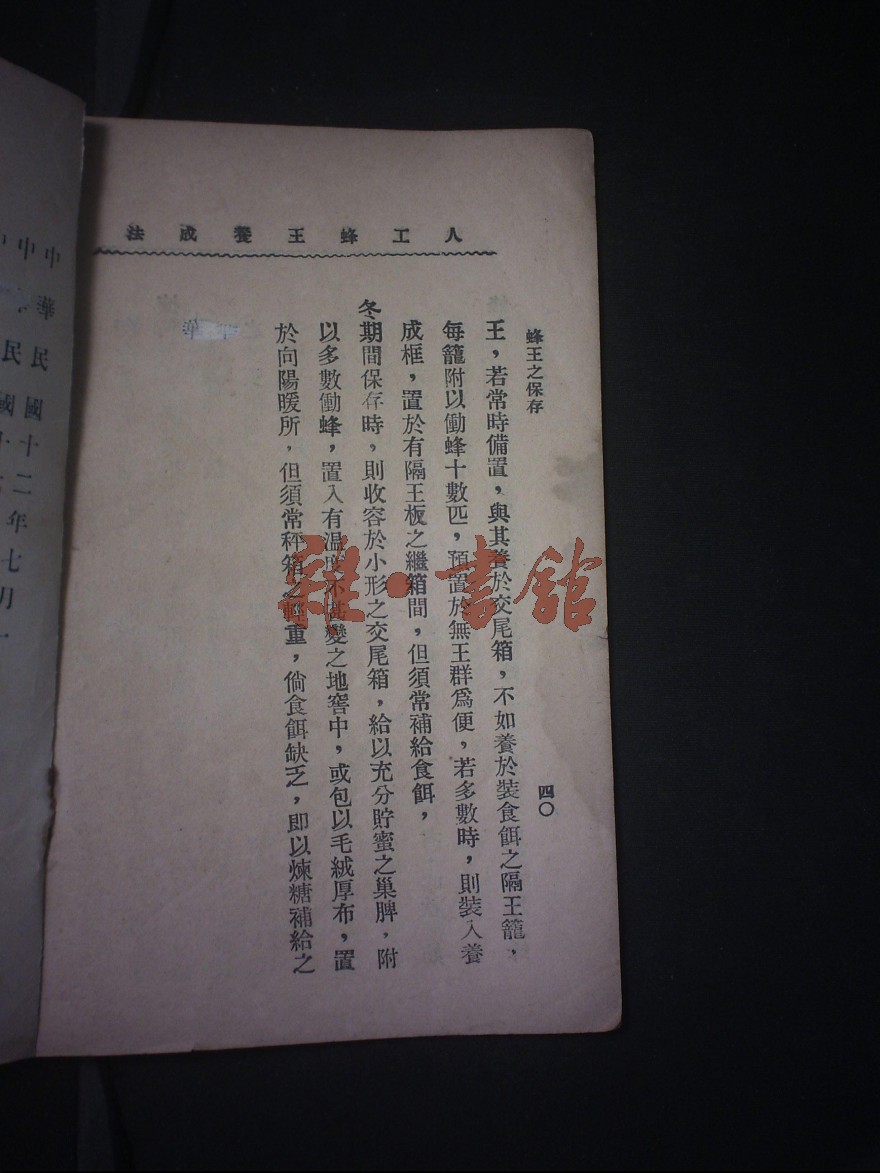 人工蜂王養成法
蜂王之保存
四〇
王，若常時備置，與其養於交尾箱，不如養於裝食餌之隔王籠，
每籠附以働蜂十數匹，預置於無王群爲便，若多數時，則裝入養
成框，置於有隔王板之繼箱間，但須常補給食餌，
冬期間保存時，則收容於小形之交尾箱，給以充分貯蜜之巢脾，附
以多數働蜂，置入有溫度不甚變之地窖中，或包以毛絨厚布，置
於向陽暖所，但須常秤箱之輕重，倘食餌缺乏，即以煉糖補給之
雜·書館
中華民國十二年七月